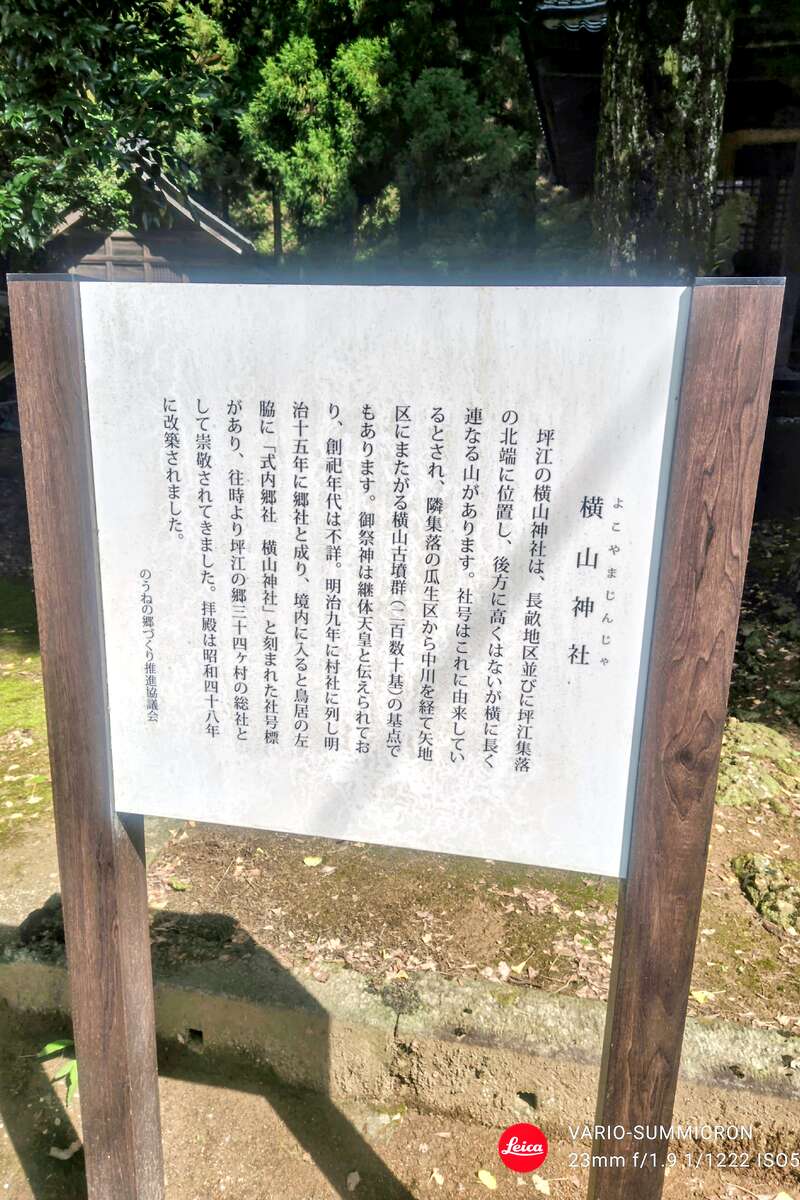 よこやまじんじゃ
横山神社
坪江の横山神社は、長畝地区並びに坪江集落
の北端に位置し、後方に高くはないが横に長く
連なる山があります。社号はこれに由来してい
るとされ、隣集落の瓜生区から中川を経て矢地
区にまたがる横山古墳群(二百数十基)の基点で
もあります。御祭神は継体天皇と伝えられてお
り、創祀年代は不詳。明治九年に村社に列し明
治十五年に郷社と成り、境内に入ると鳥居の左
脇に「式内郷社 横山神社」と刻まれた社号標
があり、往時より坪江の郷三十四ヶ村の総社と
して崇敬されてきました。拝殿は昭和四十八年
に改築されました。
のうねの郷づくり推進協議会
Leica
VARIO-SUMMICRON
23mm f/1.9 1/1222 ISO5